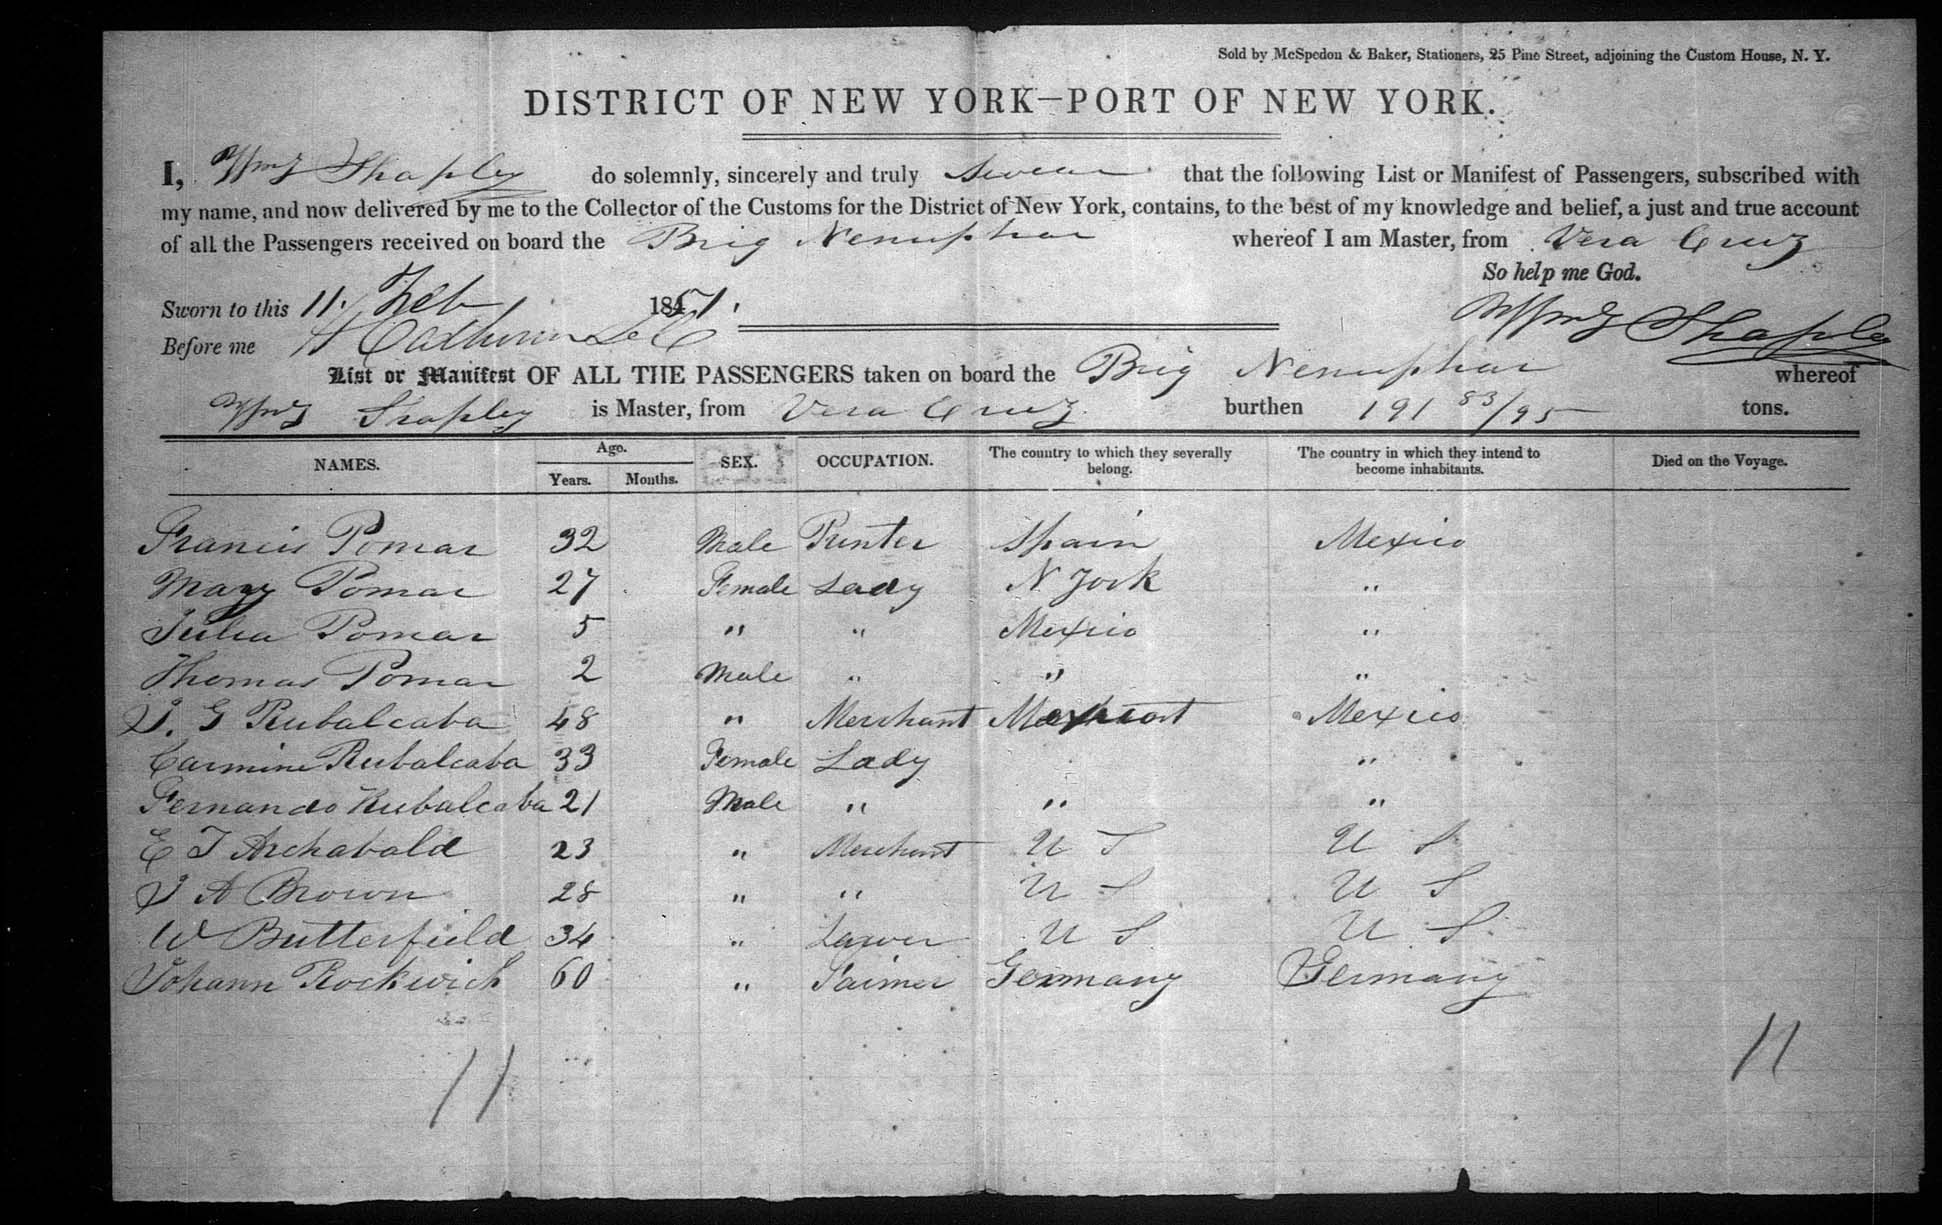 Sold by McSpedon & Baker, Stationers, 25 Pine Street, adjoining the Custom House, N. Y.
DISTRICT OF NEW YORK—PORT OF NEW YORK.
I, Shapley do solemnly, sincerely and truly swear that the following List or Manifest of Passengers, subscribed with
my name, and now delivered by me to the Collector of the Customs for the District of New York, contains, to the best of my knowledge and belief, a just and true account
of all the Passengers received on board the Brig Nenuphar whereof I am Master, from Vera Cruz
So help me God.
Sworn to this 11. Feb 1851.
Before me
Shapley
List or Manifest OF ALL THE PASSENGERS taken on board the Brig Nenuphar whereof
Shapley is Master, from Vera Cruz burthen 191 83/95 tons.
NAMES. Age. Years. Months. SEX. OCCUPATION. The country to which they severally belong. The country in which they intend to become inhabitants. Died on the Voyage.
Francis Pomar 32 Male Printer Spain Mexico
Mary Pomar 27 Female Lady N York "
Julia Pomar 5 " " Mexico "
Thomas Pomar 2 Male " " "
J. G Rubalcaba 48 " Merchant Mexico
Carmine Rubalcaba 33 Female Lady "
Fernando Rubalcaba 21 Male " " "
E T Archabald 23 " Merchant U S U S
J A Brown 28 " " U S U S
W Butterfield 34 " U S U S
Johann Rockwich 60 " Germany Germany
11 11